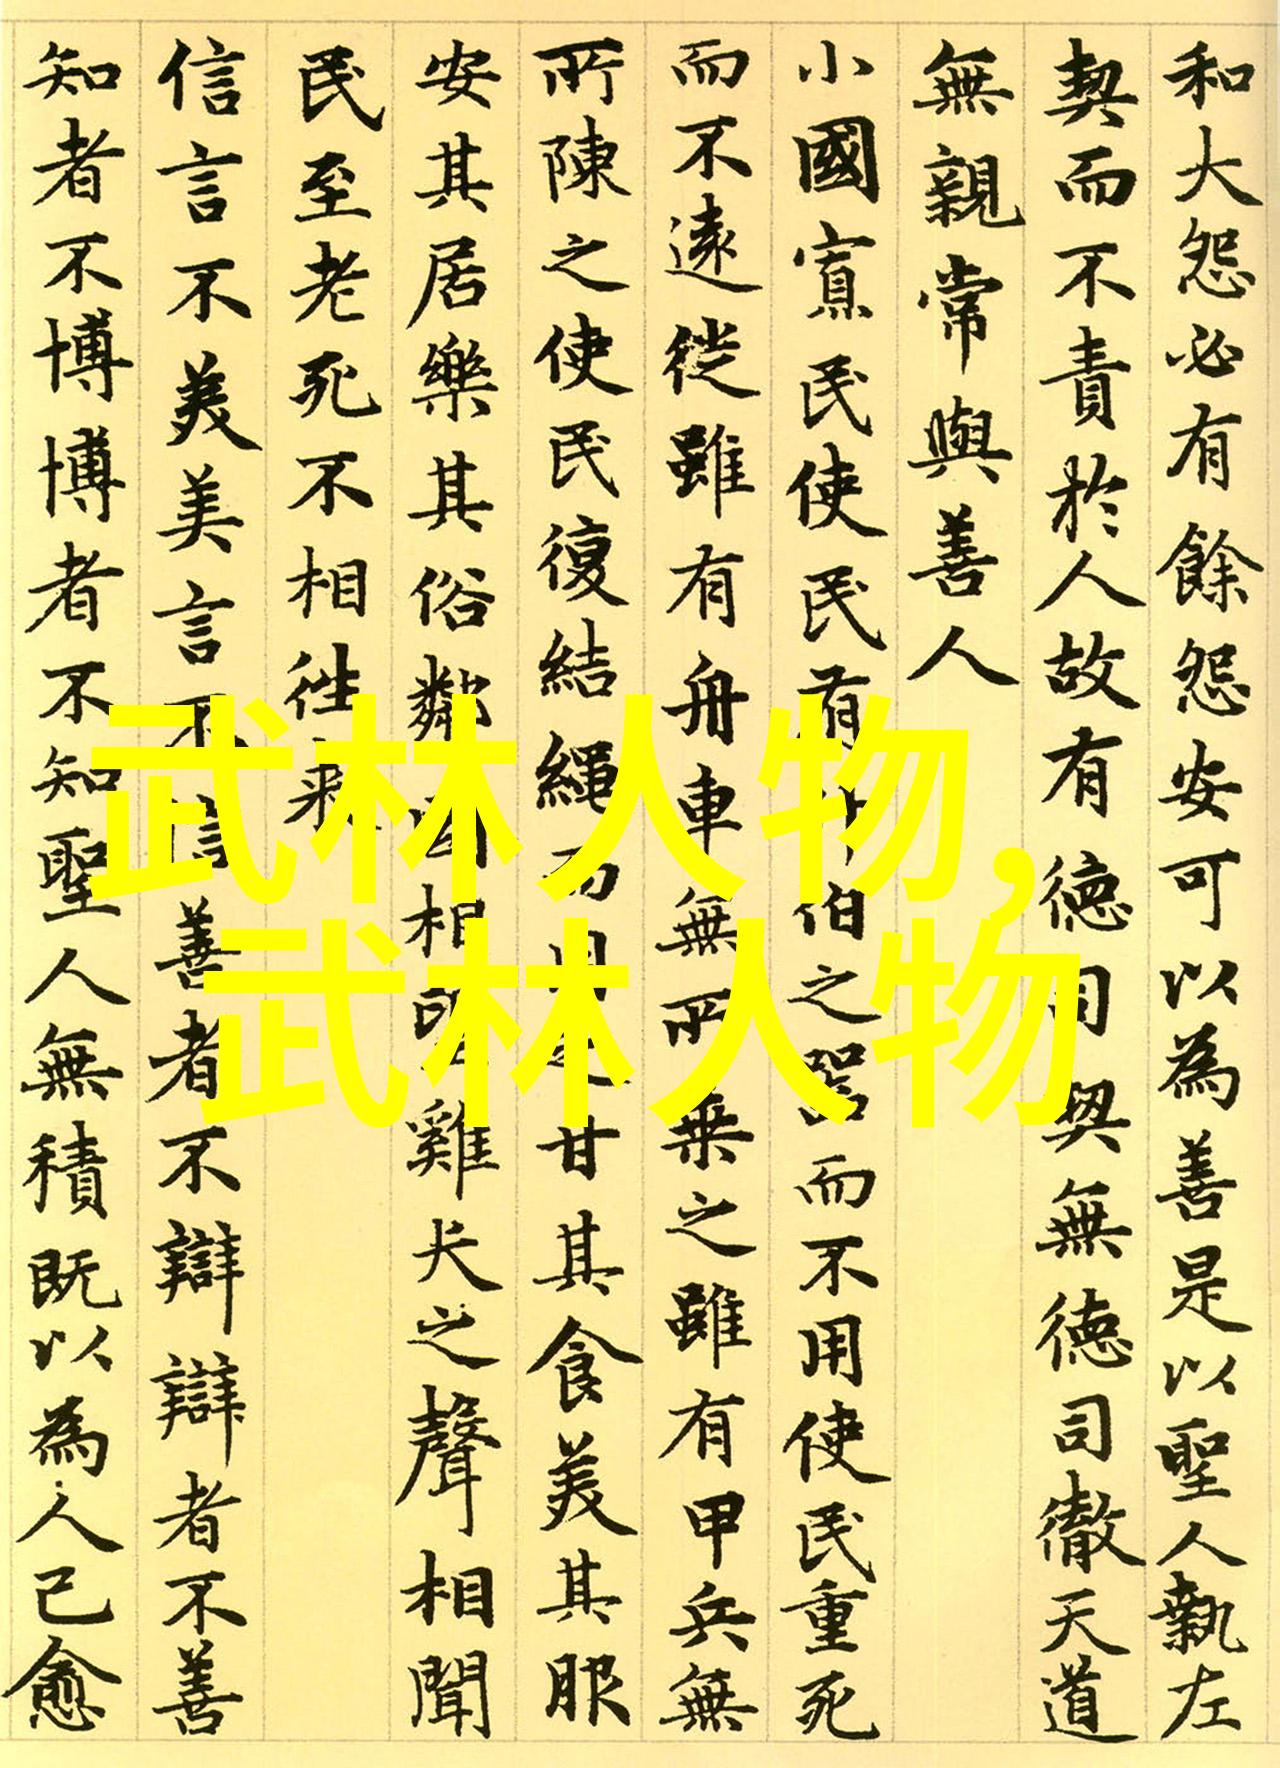 和大怨必有餘怨安可以為善是以聖人執左
契而不責於人故有德司契無德司徹天道
無親常與善人
小國寡民使民有什伯之器而不用使民重死
而不遠徙雖有舟車無所乘之雖有甲兵無
所陳之使民復結繩而用之甘其食美其服
安其居樂其俗鄰國相望雞犬之聲相聞
民至老死不相往來
信言不美美言不信善者不辯辯者不善
知者不博博者不知聖人無積既以為人己愈
武林人物,
武林人物